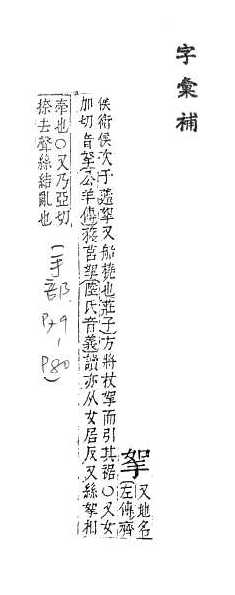 字彙補
挐
又地名
〔左傳〕齊
侯衛侯次于蘧挐又船橈也〔莊子〕方將杖挐而引其船○又女
加切音拏〔公羊傳〕獲莒挐〔陸氏音義〕讀亦从女居反又絲挐相
牽也○又乃亞切
捺去聲絲結亂也
(手部 P79-P80)